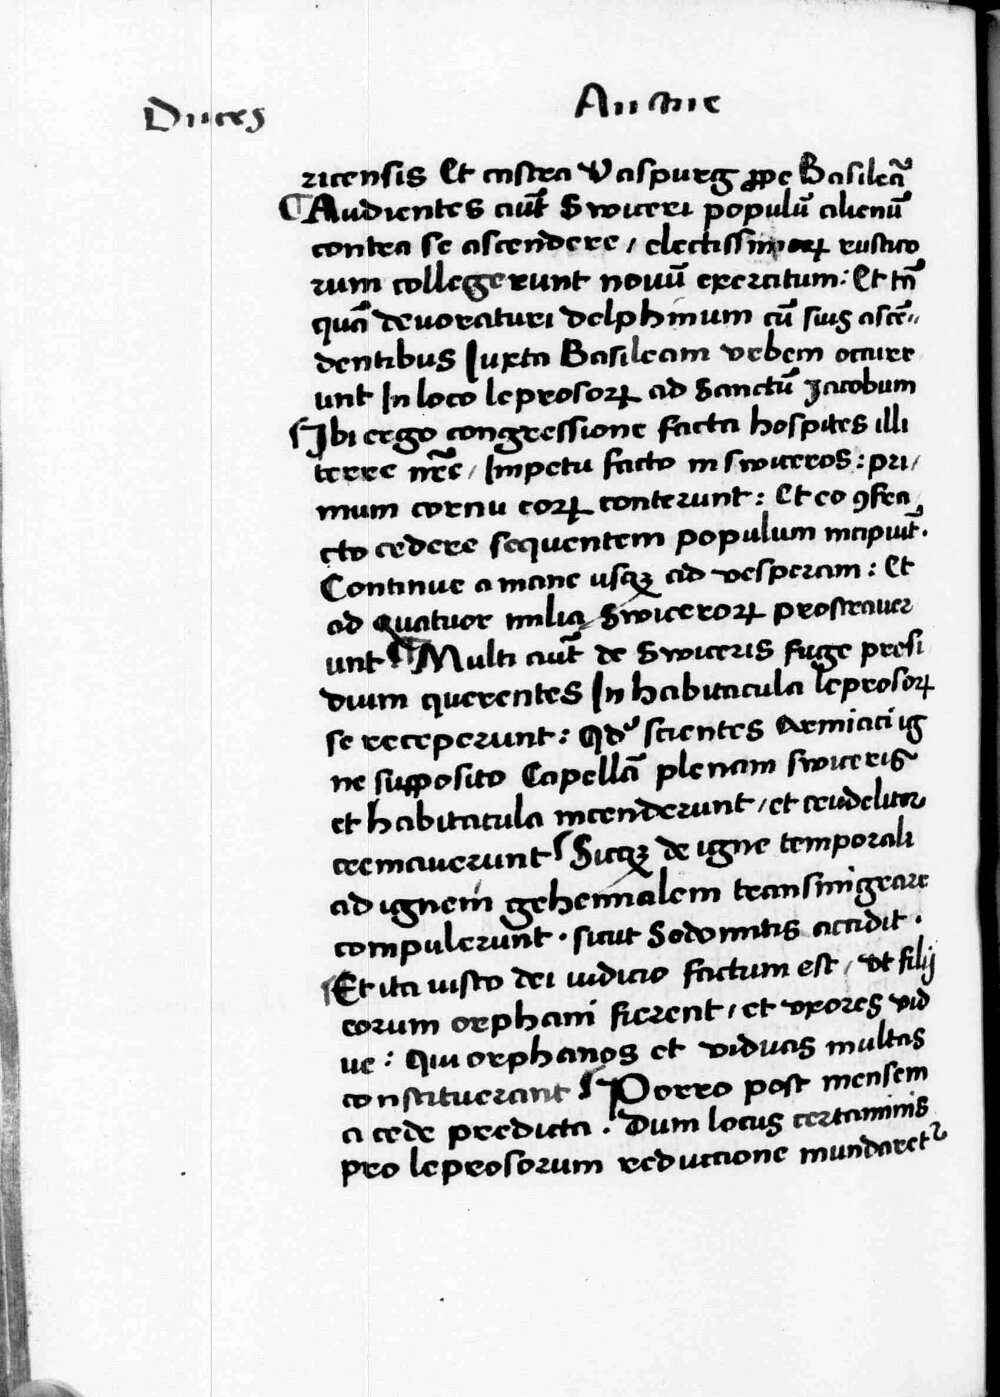 Duces
Austrie
ricensis Et castra Vaspurg ꝓpe Basileā
Audientes aūt Swiceri populū alienū
contra se ascendere / electissimorꝝ rustico
rum collegerunt nouū exercitum : Et tā
quā deuoraturi delphinum cū suis ascē
dentibus Iuxta Basileam vrbem occurr
unt In loco leprosorꝝ ad Sanctū Jacobum
Ibi ergo congressione facta hospites illi
terre nr̄e / Impetu facto in swiceros : pri/
mum cornu eorꝝ conterunt : Et eo ꝯfra
cto cedere sequentem populum incipiūt.
Continue a mane usqꝫ ad vesperam : Et
ad quatuor milia Swicerorꝝ prostrauer
unt Multi aūt de Swiceris fuge presi
dium querentes In habitacula leprosorꝝ
se receperunt : Qdꝰ scientes Armiaci ig
ne supposito Capellā plenam swiceris
et habitacula incenderunt / et crudeliter
cremauerunt Sicqꝫ de igne temporali
ad ignem gehennalem transmigrare
compulerunt . sicut Sodomitis accidit .
Et ita iusto dei iudicio factum est / vt filij
eorum orphani fierent / et vxores vid
ue : Qui orphanos et viduas multas
constituerant Porro post mensem
a cede predicta . Dum locus certaminis
pro leprosorum reductione mundaretᷣ